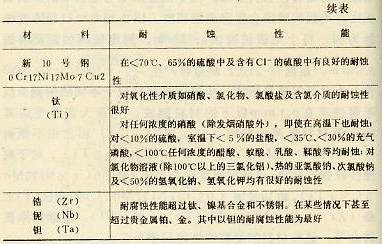 续表
材 料
耐 蚀 性 能
新 10 号 钢
0Cr17Ni17Mo7Cu2
在<70℃、65%的硫酸中及含有Cl⁻的硫酸中有良好的耐蚀
性
钛
(Ti)
对氧化性介质如硝酸、氯化物、氯酸盐及含氯介质的耐蚀性
很好
对任何浓度的硝酸（除发烟硝酸外），即使在高温下也耐蚀；
对<10%的硫酸，室温下<5%的盐酸，<35℃、<30%的充气
磷酸，<100℃任何浓度的醋酸、蚁酸、乳酸、鞣酸等均耐蚀；对
氯化物溶液（除100℃以上的三氯化铝）、热的亚氯酸钠、次氯酸钠
及<50%的氢氧化钠、氢氧化钾均有很好的耐蚀性
锆 (Zr)
铌 (Nb)
钽 (Ta)
耐腐蚀性能超过钛、镍基合金和不锈钢。在某些情况下甚至
超过贵金属铂、金。其中以钽的耐腐蚀性能为最好